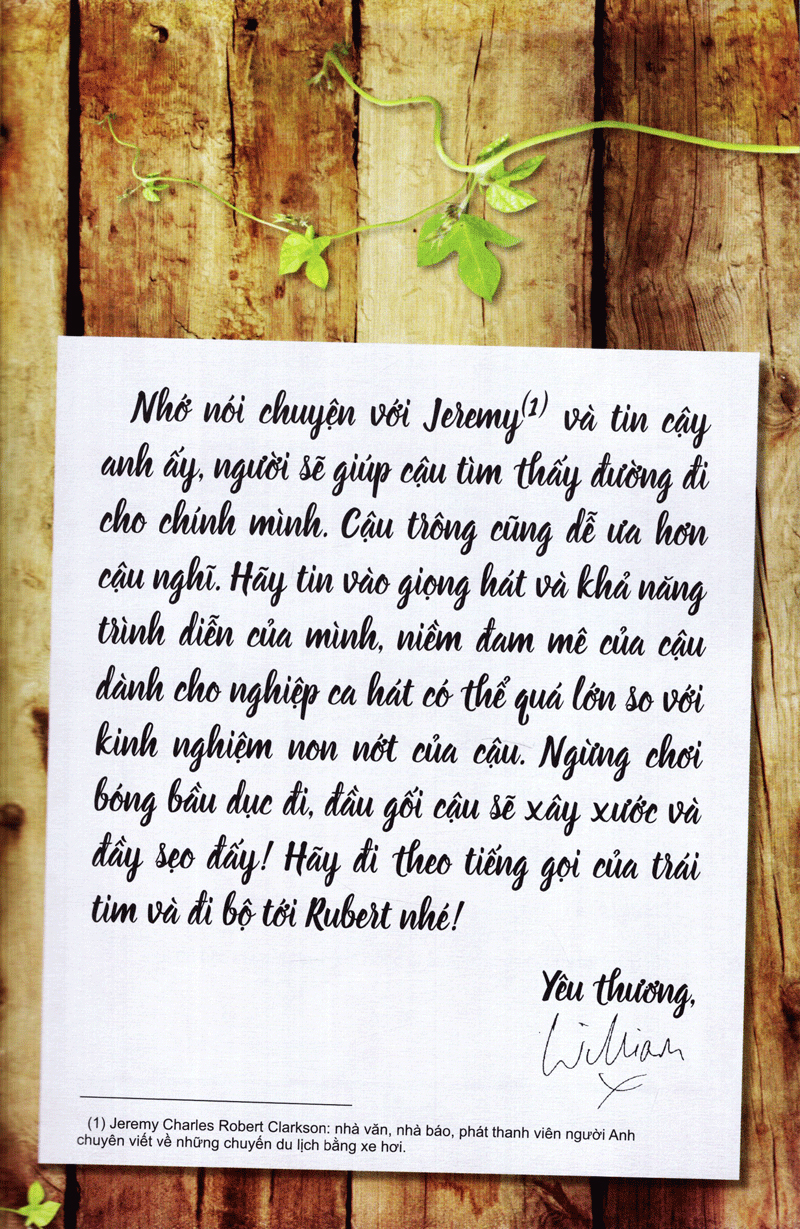 Nhớ nói chuyện với Jeremy(1) và tin cậy
anh ấy, người sẽ giúp cậu tìm thấy đường đi
cho chính mình. Cậu trông cũng dễ ưa hơn
cậu nghĩ. Hãy tin vào giọng hát và khả năng
trình diễn của mình, niềm đam mê của cậu
dành cho nghiệp ca hát có thể quá lớn so với
kinh nghiệm non nớt của cậu. Ngừng chơi
bóng bầu dục đi, đầu gối cậu sẽ xây xước và
đầy sẹo đấy! Hãy đi theo tiếng gọi của trái
tim và đi bộ tới Rubert nhé!
Yêu thương,
William
x
(1) Jeremy Charles Robert Clarkson: nhà văn, nhà báo, phát thanh viên người Anh
chuyên viết về những chuyến du lịch bằng xe hơi.